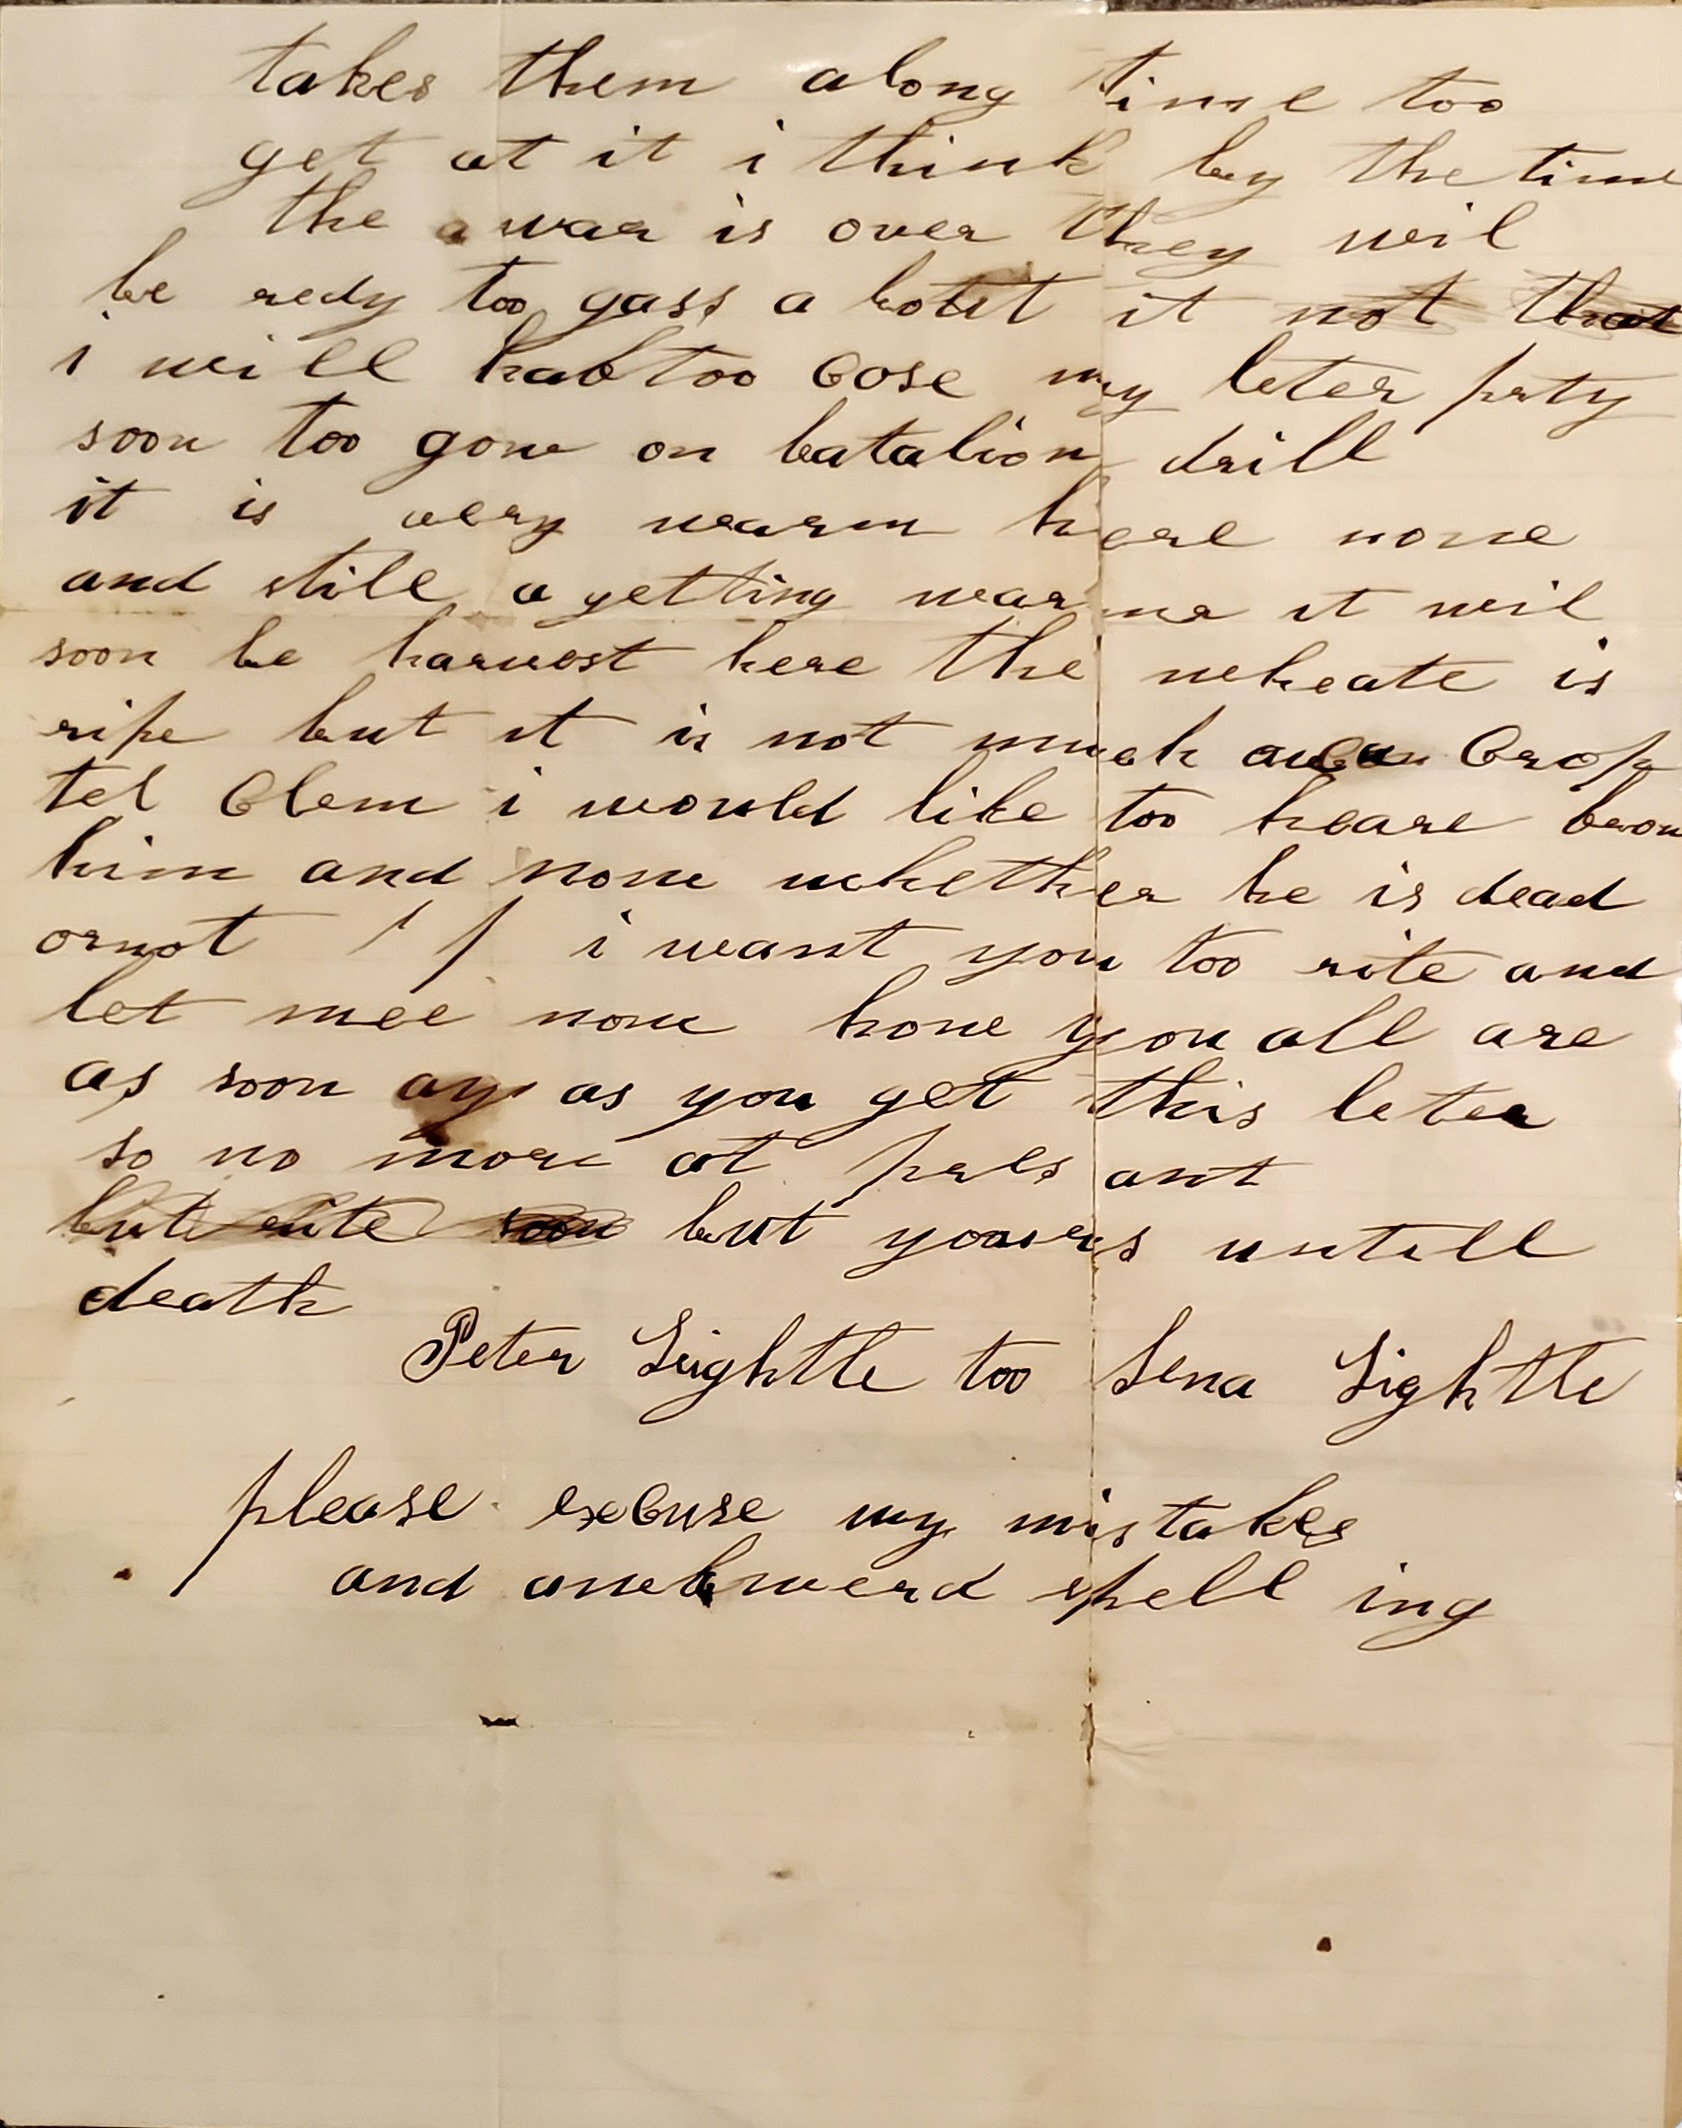 takes them along time too
get at it i think by the time
the a war is over they wil
be redy too gass a botut it not that
i will hab too Cose my leter prty
soon too gow on batalion drill
it is very warm heare now
and stile a getting warmer it wil
soon be harvest here the wheate is
ripe but it is not much Crop
tel Clem i would like too heare from
him and now whether he is dead
ornot i want you too rite and
let mee now how you all are
as soon ay as you get this leter
so no more at presant
but rite soon but yoours untill
death
Peter Lightle too Lena Lightle
please excuse my mistakes
and awkwerd spell ing